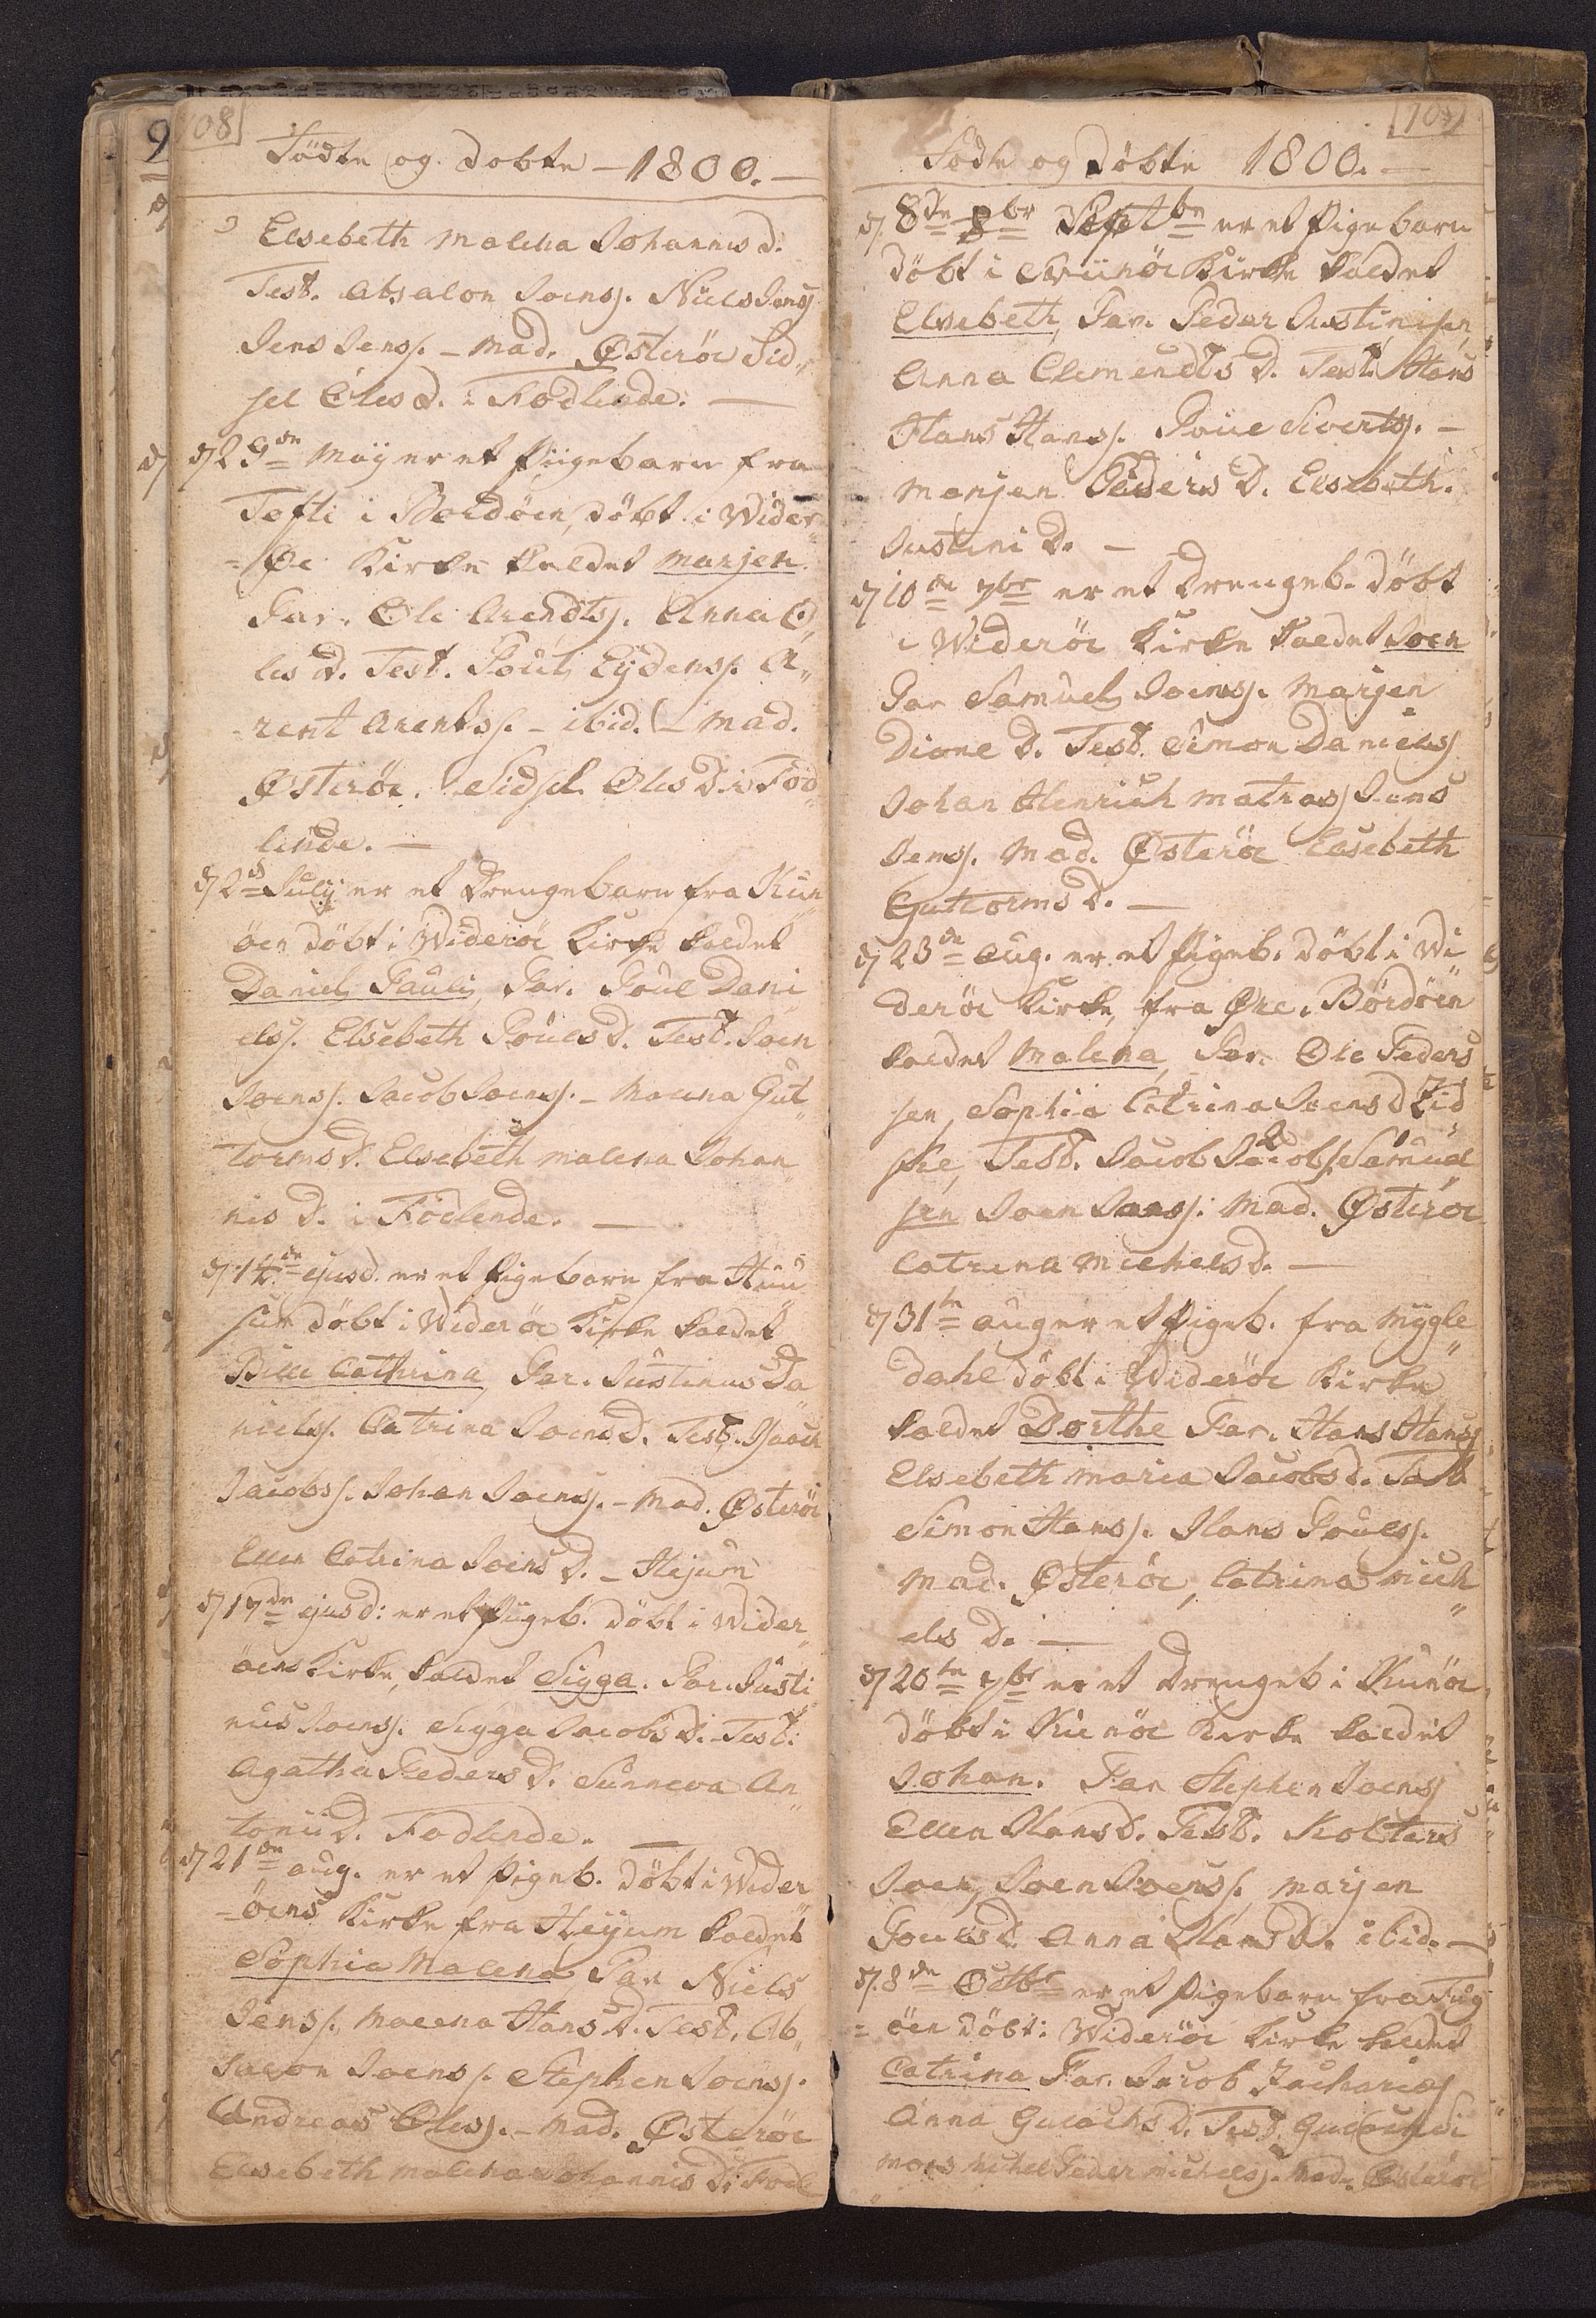 108]
Födte og döbte - 1800. -
Elsebeth Malena Johannis d.
Test. Absalon Joens. Niels Jens.
Jens Jens. - Mad. Østeröe Sid„
sel Oles d. i Fodlende. -
d 29de Maÿ er et Piigebarn fra
Tofte i Bordöen, döbt i Wider
= Øe Kirke kaldet Marjen.
Par. Ole Arendts. Anna O
les d. Test. Poul Eÿdens. A„
rent Arents. - ibid. - Mad.
Østeröe. Sidsel Oles D. i Fod„
lende. -
d 2d Julÿ er et Drengebarn fra Kun
öen döbt i Wideröe Kirke kaldet
Daniel Pauli, Par. Poul Dani
els. Elsebeth Pouls d. Test. Joen
Joens. Jacob Joens. - Malena Gut„
torms d. Elsebeth Malena Johan„
nis d. i Födlende. -
d 14de ejusd. er et Pigebarn fra Huu
sum döbt i Wideröe Kirke kaldet
Bille Cathrina Par. Justinus Da
niels. Catrina Joens D. Test. Isaach
Jacobs. Johan Joens. - Mad. Østeröe
Ellen Catrina Joens D. - Hejum
d 17de ejusd: er et Piigeb. döbt i Wider„
öens Kirke, kaldet Sigga. Par. Justi
nus Joens. Sigga Jacobs D. Test:
Agatha Peders d. Sunneva An„
tonii D. Fodlende. -
d 21de Aug. er et Pigeb. döbt i Wider„
- öens Kirke fra Heÿum kaldet
Sophia Malena, Par Niels
Jens. Malena Hans D. Test. Ab„
salon Joens. Stephen Joens.
Andreas Oles. - Mad. Østeröe
Elsebeth Malena Johannis D: Fodl
[109
Födte og Döbte 1800. -
d. 8de 8br Septbr er et Pigebarn
döbt i Swiinöe Kirke kaldet
Elsebeth, Par. Peder Justinisen
Anna Clemendts D. Test. Hans
Hans Hans. Poul Siverts. -
Marjen Peders D. Elsebeth.
Justini D. -
d 10de 7br er et Drengeb. döbt
i Wideröe Kirke kaldet Joen
Par Samuel Joens. Marjen
Dione D. Test. Simon Daniels
Johan Henrich Matras Jens
Jens. Mad. Østeröe Elsebeth
Guttorms D. -
d 23de Aug. er et Pigeb. döbt i Wi
deröe Kirke, fra Øre, Bördöen
kaldet Malena, Par. Ole Peders
sen, Sophia Catrina Joens d Tid
ske, Test. Jacob Jacobs. Samuel
sen Joen Joens. Mad. Østeröe
Catrina Michels d. -
d 31te Aug er et Pigeb. fra Mÿgle„
dahl döbt i Wideröe Kirke
kaldet Dorthe Par. Hans Hans
Elsebeth Maria Jacobs d. Test
Simon Hans. Hans Pouls.
Mad. Østeröe, Catrina Mich„
els D. -
d 20te 7br er et Drengeb i Kunöe
döbt i Kunöe Kirke kaldet
Johan. Par Stephen Joens
Ellen Hans d. Test.
Joen, Joen Joens. Marjen
Pouls d. Anna Hans D. ibid. -
d. 8de Octbr er et Pigebarn fra Fug
= öen döbt i Wideröe Kirke kaldet
Catrina Par. Jacob Zacharias
Anna Gulachs D. Test. Gulach Si
mons Michel Peder Michels. Mad. Østeröe